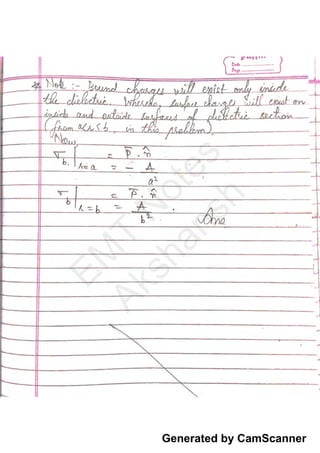 Date
Page
* Note :- Bound charges will exist only inside
the dielectric. Whereas, surface charges will exist on
inside and outside surfaces of dielectric section
(from a<r<b, in this problem).
Now,
σb|r=a = P̄ . n̂
= - A/a²
σb|r=b = P̄ . n̂
= A/b² . Ans
EMT Notes
Akshansh
Generated by CamScanner